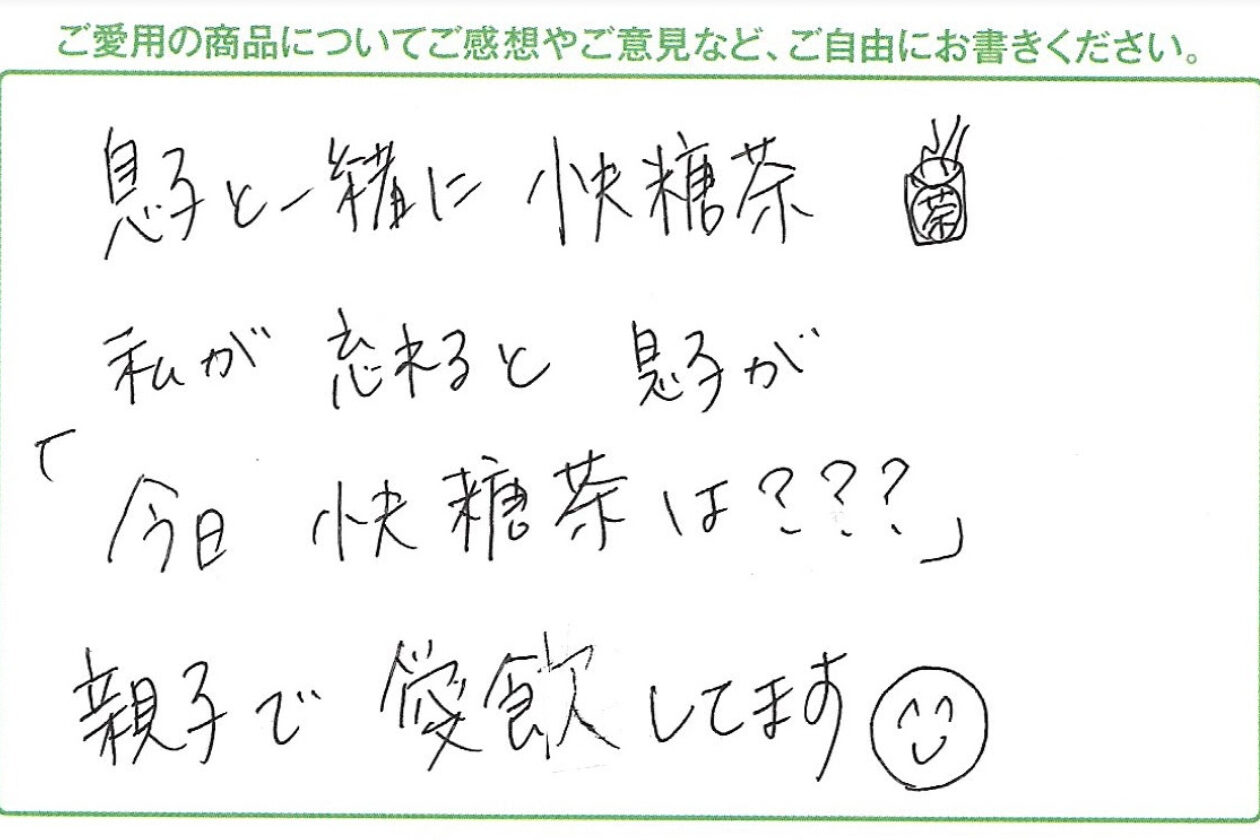 ご愛用の商品についてご感想やご意見など、ご自由にお書きください。
息子と一緒に 快糖茶 茶
私が 忘れると 息子が
「今日 快糖茶は???」
親子で 愛飲してます